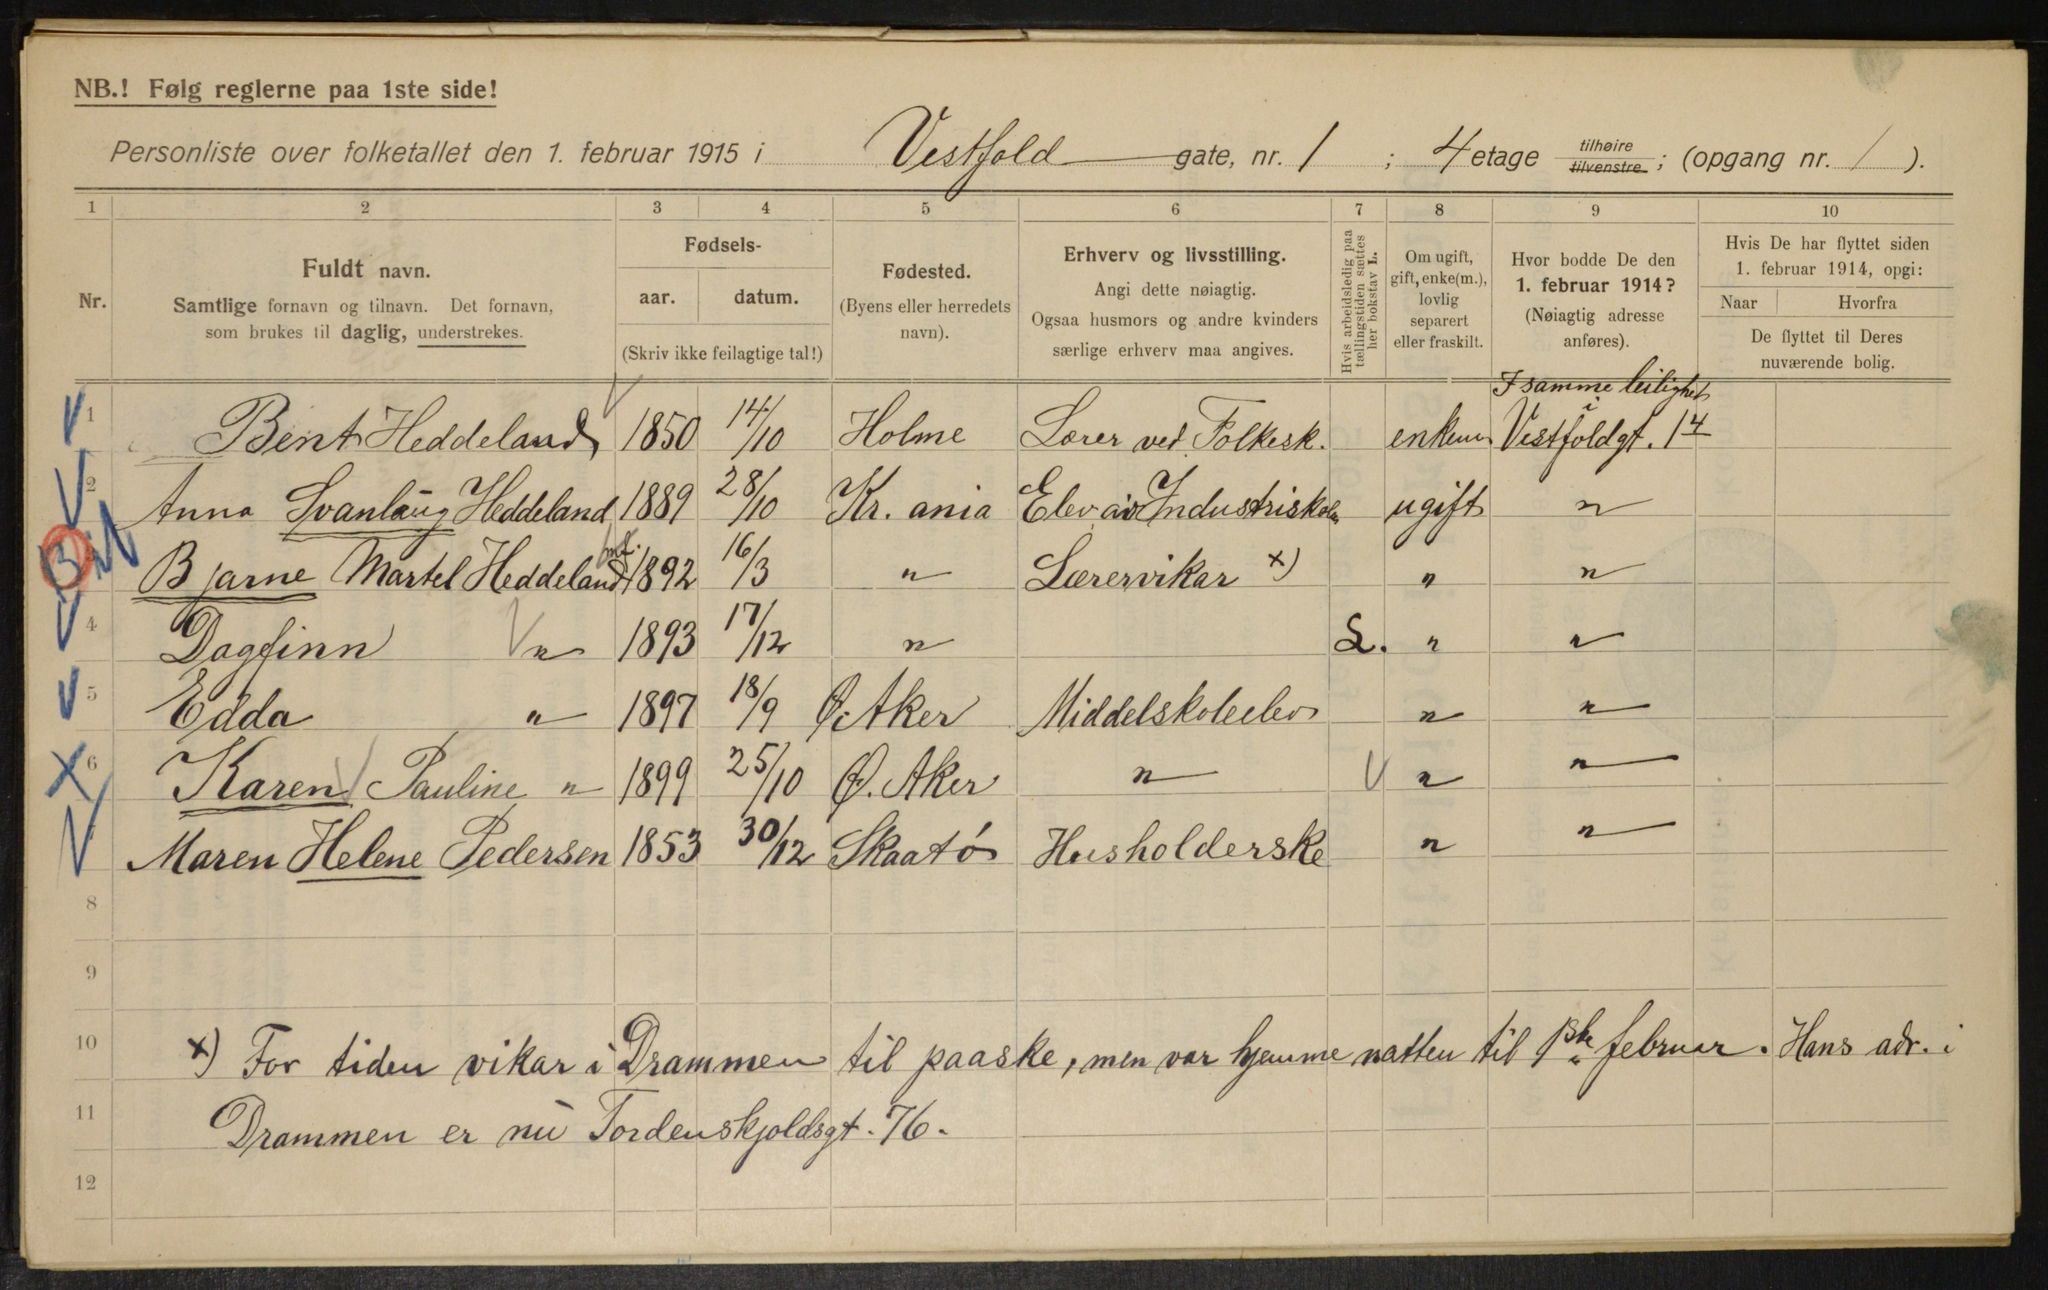 NB.! Følg reglerne paa 1ste side!
Personliste over folketallet den 1. februar 1915 i Vestfold gate, nr. 1 ; 4 etage tilhøire tilvenstre ; (opgang nr. 1 ).
1 2 3 4 5 6 7 8 9 10
Nr.
Fuldt navn.
Samtlige fornavn og tilnavn. Det fornavn,
som brukes til daglig, understrekes.
Fødsels-
aar. datum.
(Skriv ikke feilagtige tal!)
Fødested.
(Byens eller herredets
navn).
Erhverv og livsstilling.
Angi dette nøiagtig.
Ogsaa husmors og andre kvinders
særlige erhverv maa angives.
Hvis arbeidsledig paa
tællingstiden sættes
her bokstav L.
Om ugift,
gift, enke(m.),
lovlig
separert
eller fraskilt.
Hvor bodde De den
1. februar 1914?
(Nøiagtig adresse
anføres).
Hvis De har flyttet siden
1. februar 1914, opgi:
Naar Hvorfra
De flyttet til Deres
nuværende bolig.
I samme leilighet
i
1 Bent Heddeland 1850 14/10 Holme Lærer ved Folkesk. enkem Vestfoldgt. 14
2 Anna Svanlaug Heddeland 1889 28/10 Kr.ania Elev av Industriskolen ugift "
mf.
3 Bjarne Martel Heddeland 1892 16/3 " Lærervikar x) " "
4 Dagfinn " 1893 17/12 " L. " "
5 Edda " 1897 18/9 Ø. Aker Middelskoleelev " "
6 Karen Pauline " 1899 25/10 Ø. Aker " " "
Maren Helene Pedersen 1853 30/12 Skaatø Husholderske " "
8
9
10 x) For tiden vikar i Drammen til paaske, men var hjemme natten til 1ste februar. Hans adr. i
11 Drammen er nu Tordenskjoldsgt. 76.
12